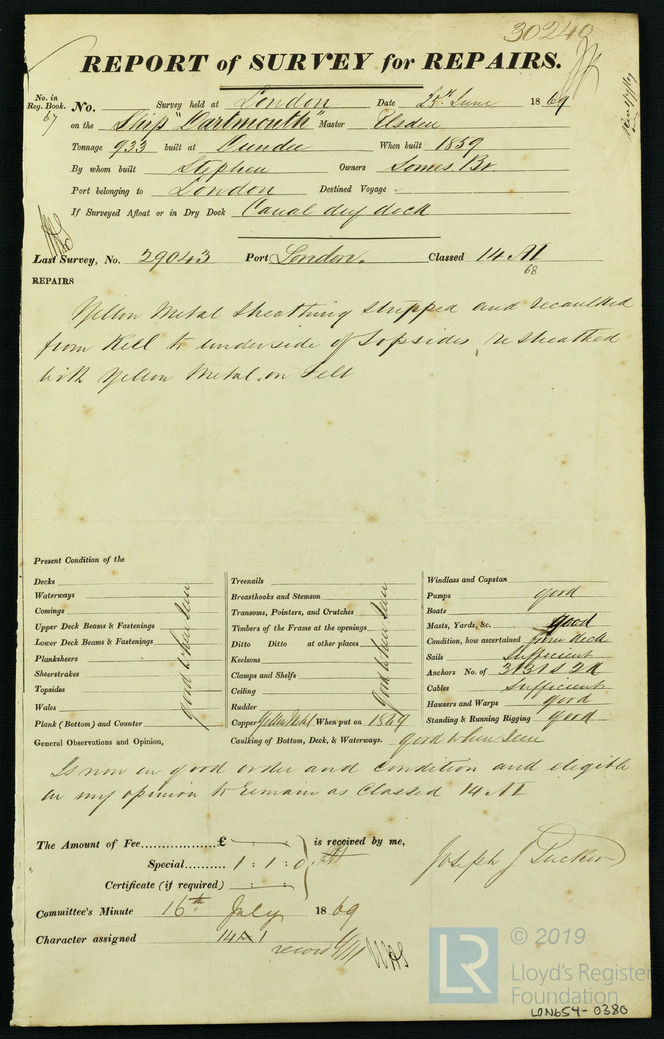 30240
REPORT of SURVEY for REPAIRS.
No. in
Reg. Book.
67
No. Survey held at London Date 25th June 1869
on the Ship "Dartmouth" Master Elsden
Tonnage 933 built at Dundee When built 1859
By whom built Stephen Owners Somes Br.
Port belonging to London Destined Voyage
If Surveyed Afloat or in Dry Dock Canal dry dock
Last Survey, No. 29043 Port London. Classed 14 A1
68
REPAIRS
Yellow Metal Sheathing stripped and recaulked
from Keel to underside of Topsides, resheathed
with Yellow Metal on Felt
Present Condition of the
Decks
Waterways
Comings
Upper Deck Beams & Fastenings
Lower Deck Beams & Fastenings
Planksheers
Sheerstrakes
Topsides
Wales
Plank (Bottom) and Counter
good where seen
Treenails
Breasthooks and Stemson
Transoms, Pointers, and Crutches
Timbers of the Frame at the openings
Ditto Ditto at other places
Keelsons
Clamps and Shelfs
Ceiling
Rudder
good where seen
Copper Yellow Metal When put on 1869
Caulking of Bottom, Deck, & Waterways. good where seen
Windlass and Capstan
Pumps good
Boats
Masts, Yards, &c. good
Condition, how ascertained from deck
Sails Sufficient
Anchors No. of 3B 1S 2K
Cables Sufficient
Hawsers and Warps good
Standing & Running Rigging good
General Observations and Opinion,
Is now in good order and condition and eligible
in my opinion to remain as Classed 14 A1
The Amount of Fee £ is received by me,
Special 1 : 1 : 0
Certificate (if required)
Joseph J Tucker
Committee's Minute 16th July 1869
Character assigned 14 A 1
record
LR
© 2019
Lloyd's Register
Foundation
LON654-0380